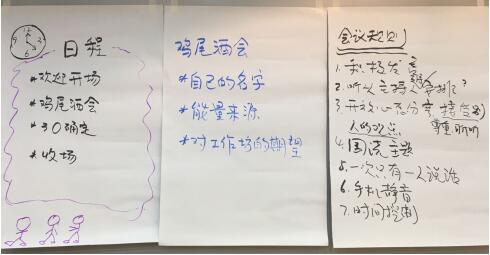 日程
*欢迎开场
*鸡尾酒会
*30确定
*收场
鸡尾酒会
*自己的名字
*能量来源
*对工作场的期望
会议规则
1.积极发言
2.听从主持人安排
3.开放心态分享 接受别
人的观点
尊重 聆听
4.围绕主题
5.一次只有一人说话
6.手机静音
7.时间控制